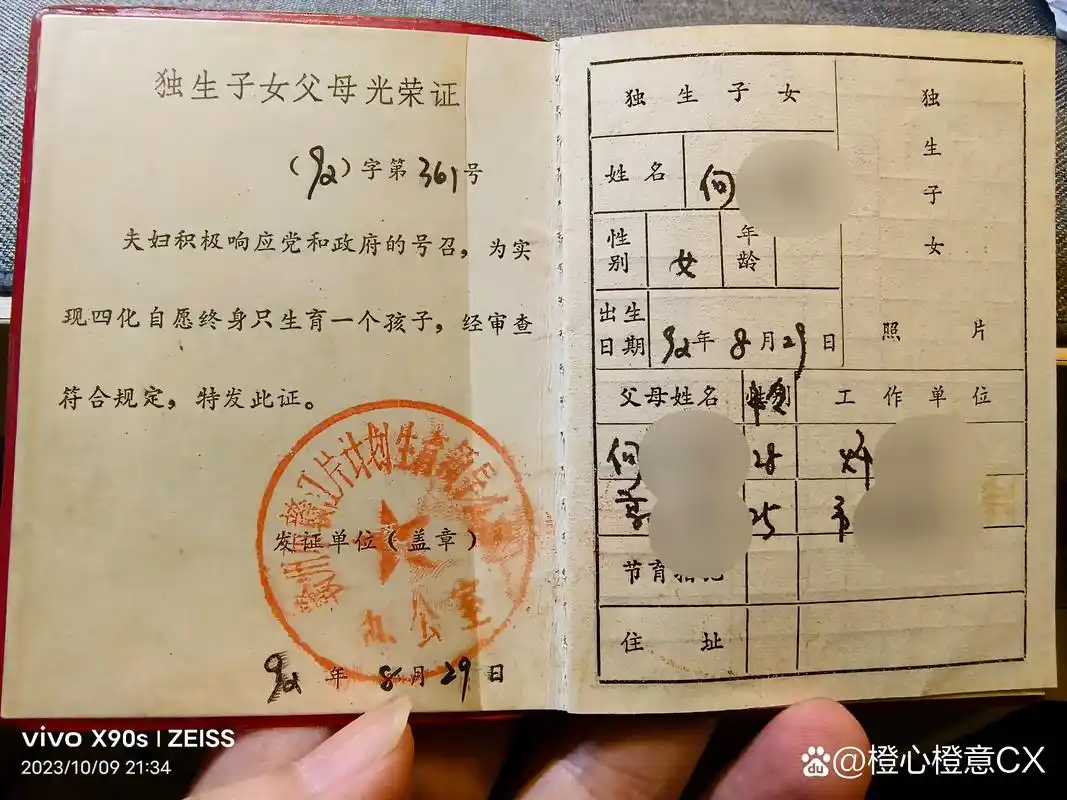 独生子女父母光荣证
(92)字第361号
夫妇积极响应党和政府的号召,为实
现四化自愿终身只生育一个孩子,经审查
符合规定,特发此证。
发证单位(盖章)
办公室
92年8月29日
独生子女
姓名 何
性别 女 年龄
出生日期 92年8月29日
独生子女
照片
父母姓名 工作单位
何 28
25 市
节育
住址
vivo X90s | ZEISS
2023/10/09 21:34
Bai du @橙心橙意CX